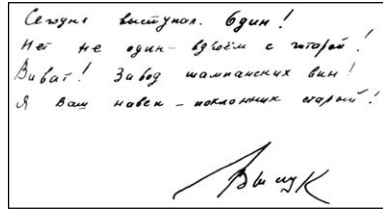 Сегодня выступал. Один!
Нет не один – вдвоём с гитарой!
Виват! Завод шампанских вин!
Я Ваш навек – поклонник старый!